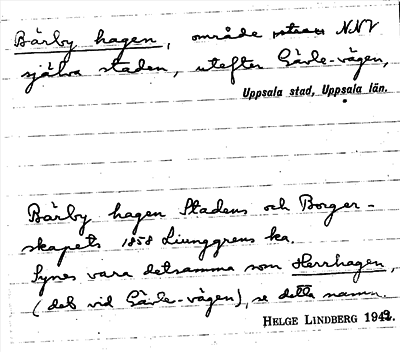 Bärby hagen, område NNV
själva staden, utefter Gävle-vägen,
Uppsala stad, Uppsala län.
Bärby hagen Stadens och Borger-
skapets 1858 Ljunggrens ka.
Synes vara detsamma som Herrhagen,
(del vid Gävle-vägen), se detta namn.
HELGE LINDBERG 1943.